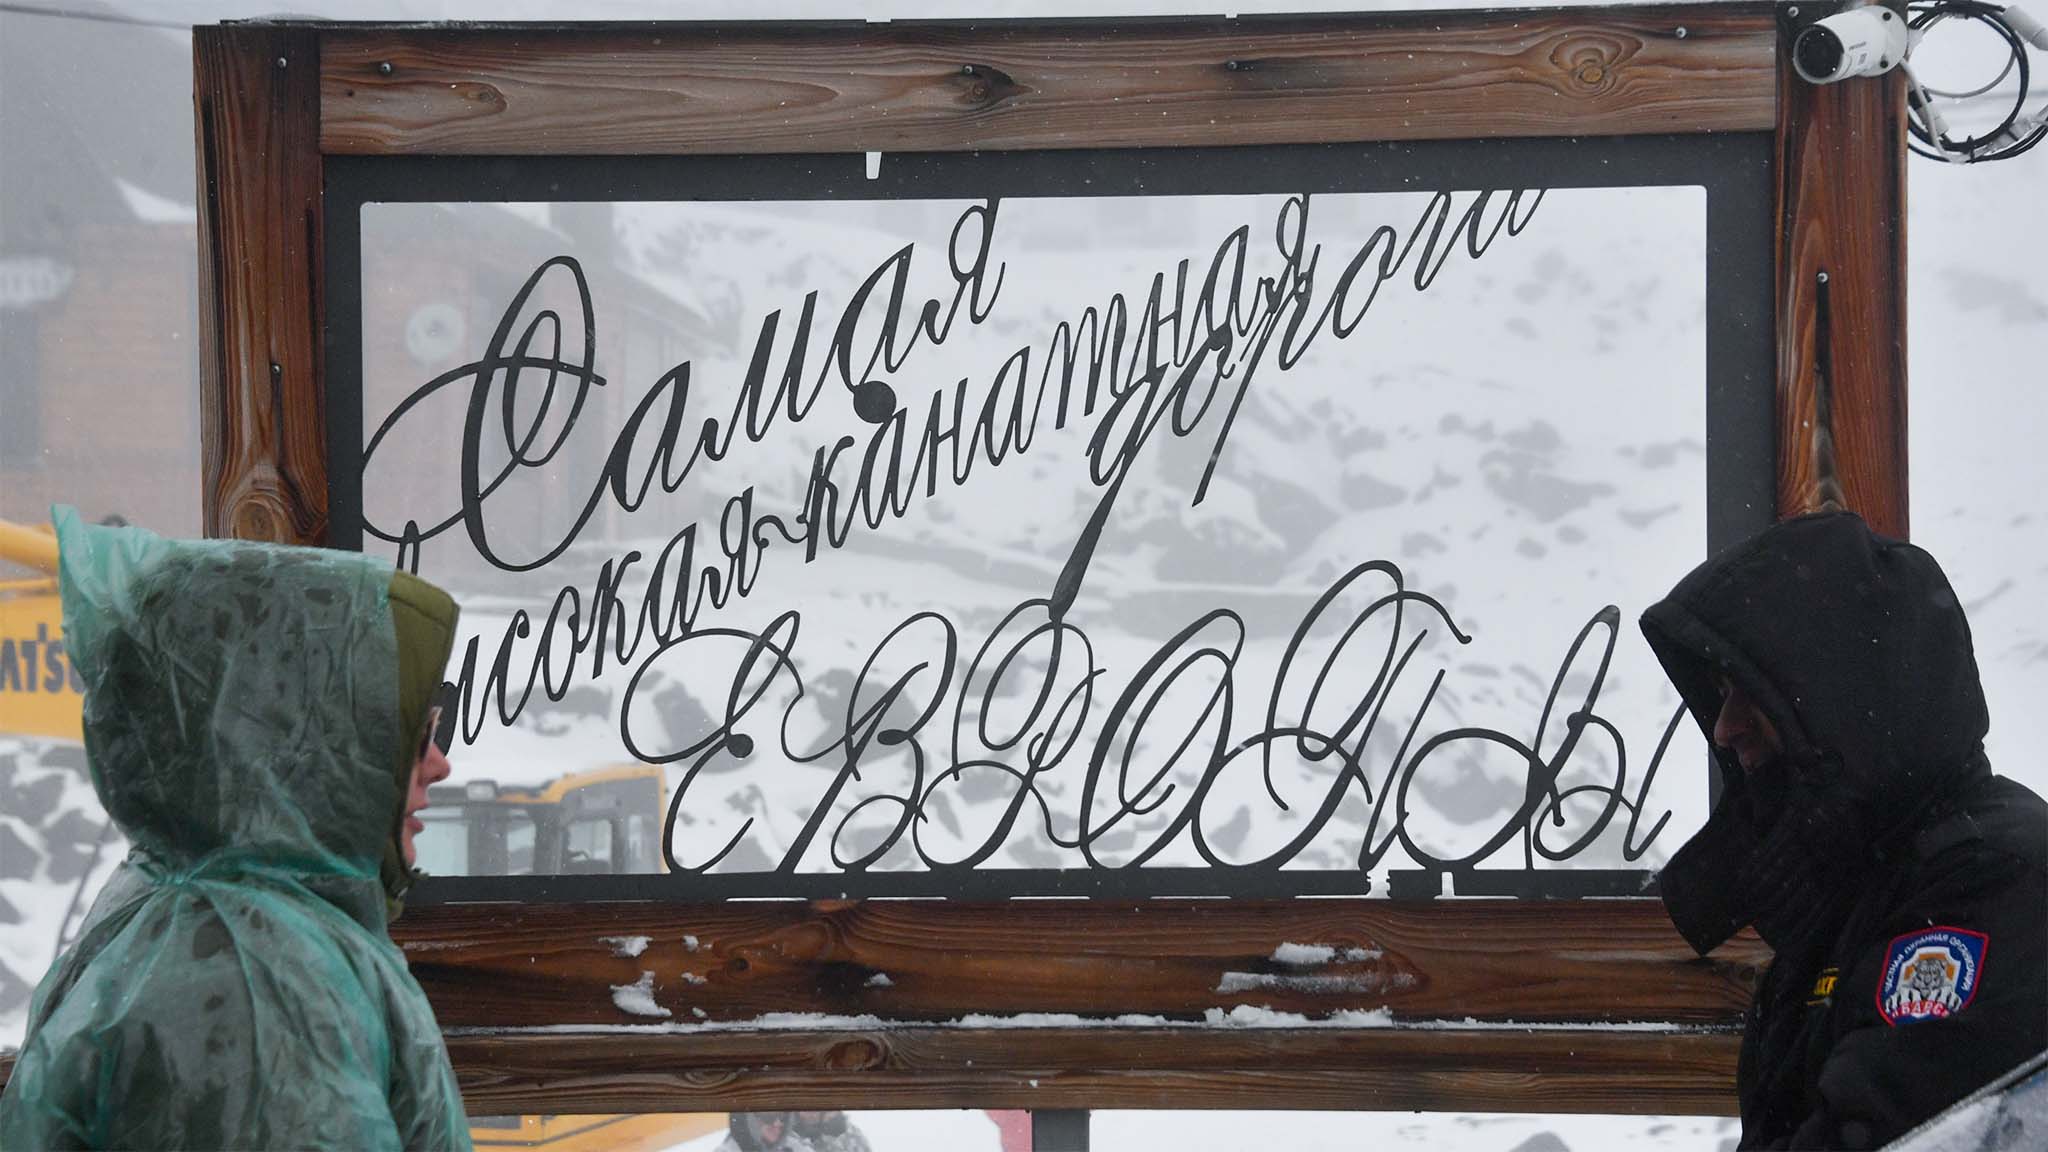 Самая
высокая канатная
дорога
ЕВРОПЫ
ЧАСТНАЯ ОХРАННАЯ ОРГАНИЗАЦИЯ
"БАРС"